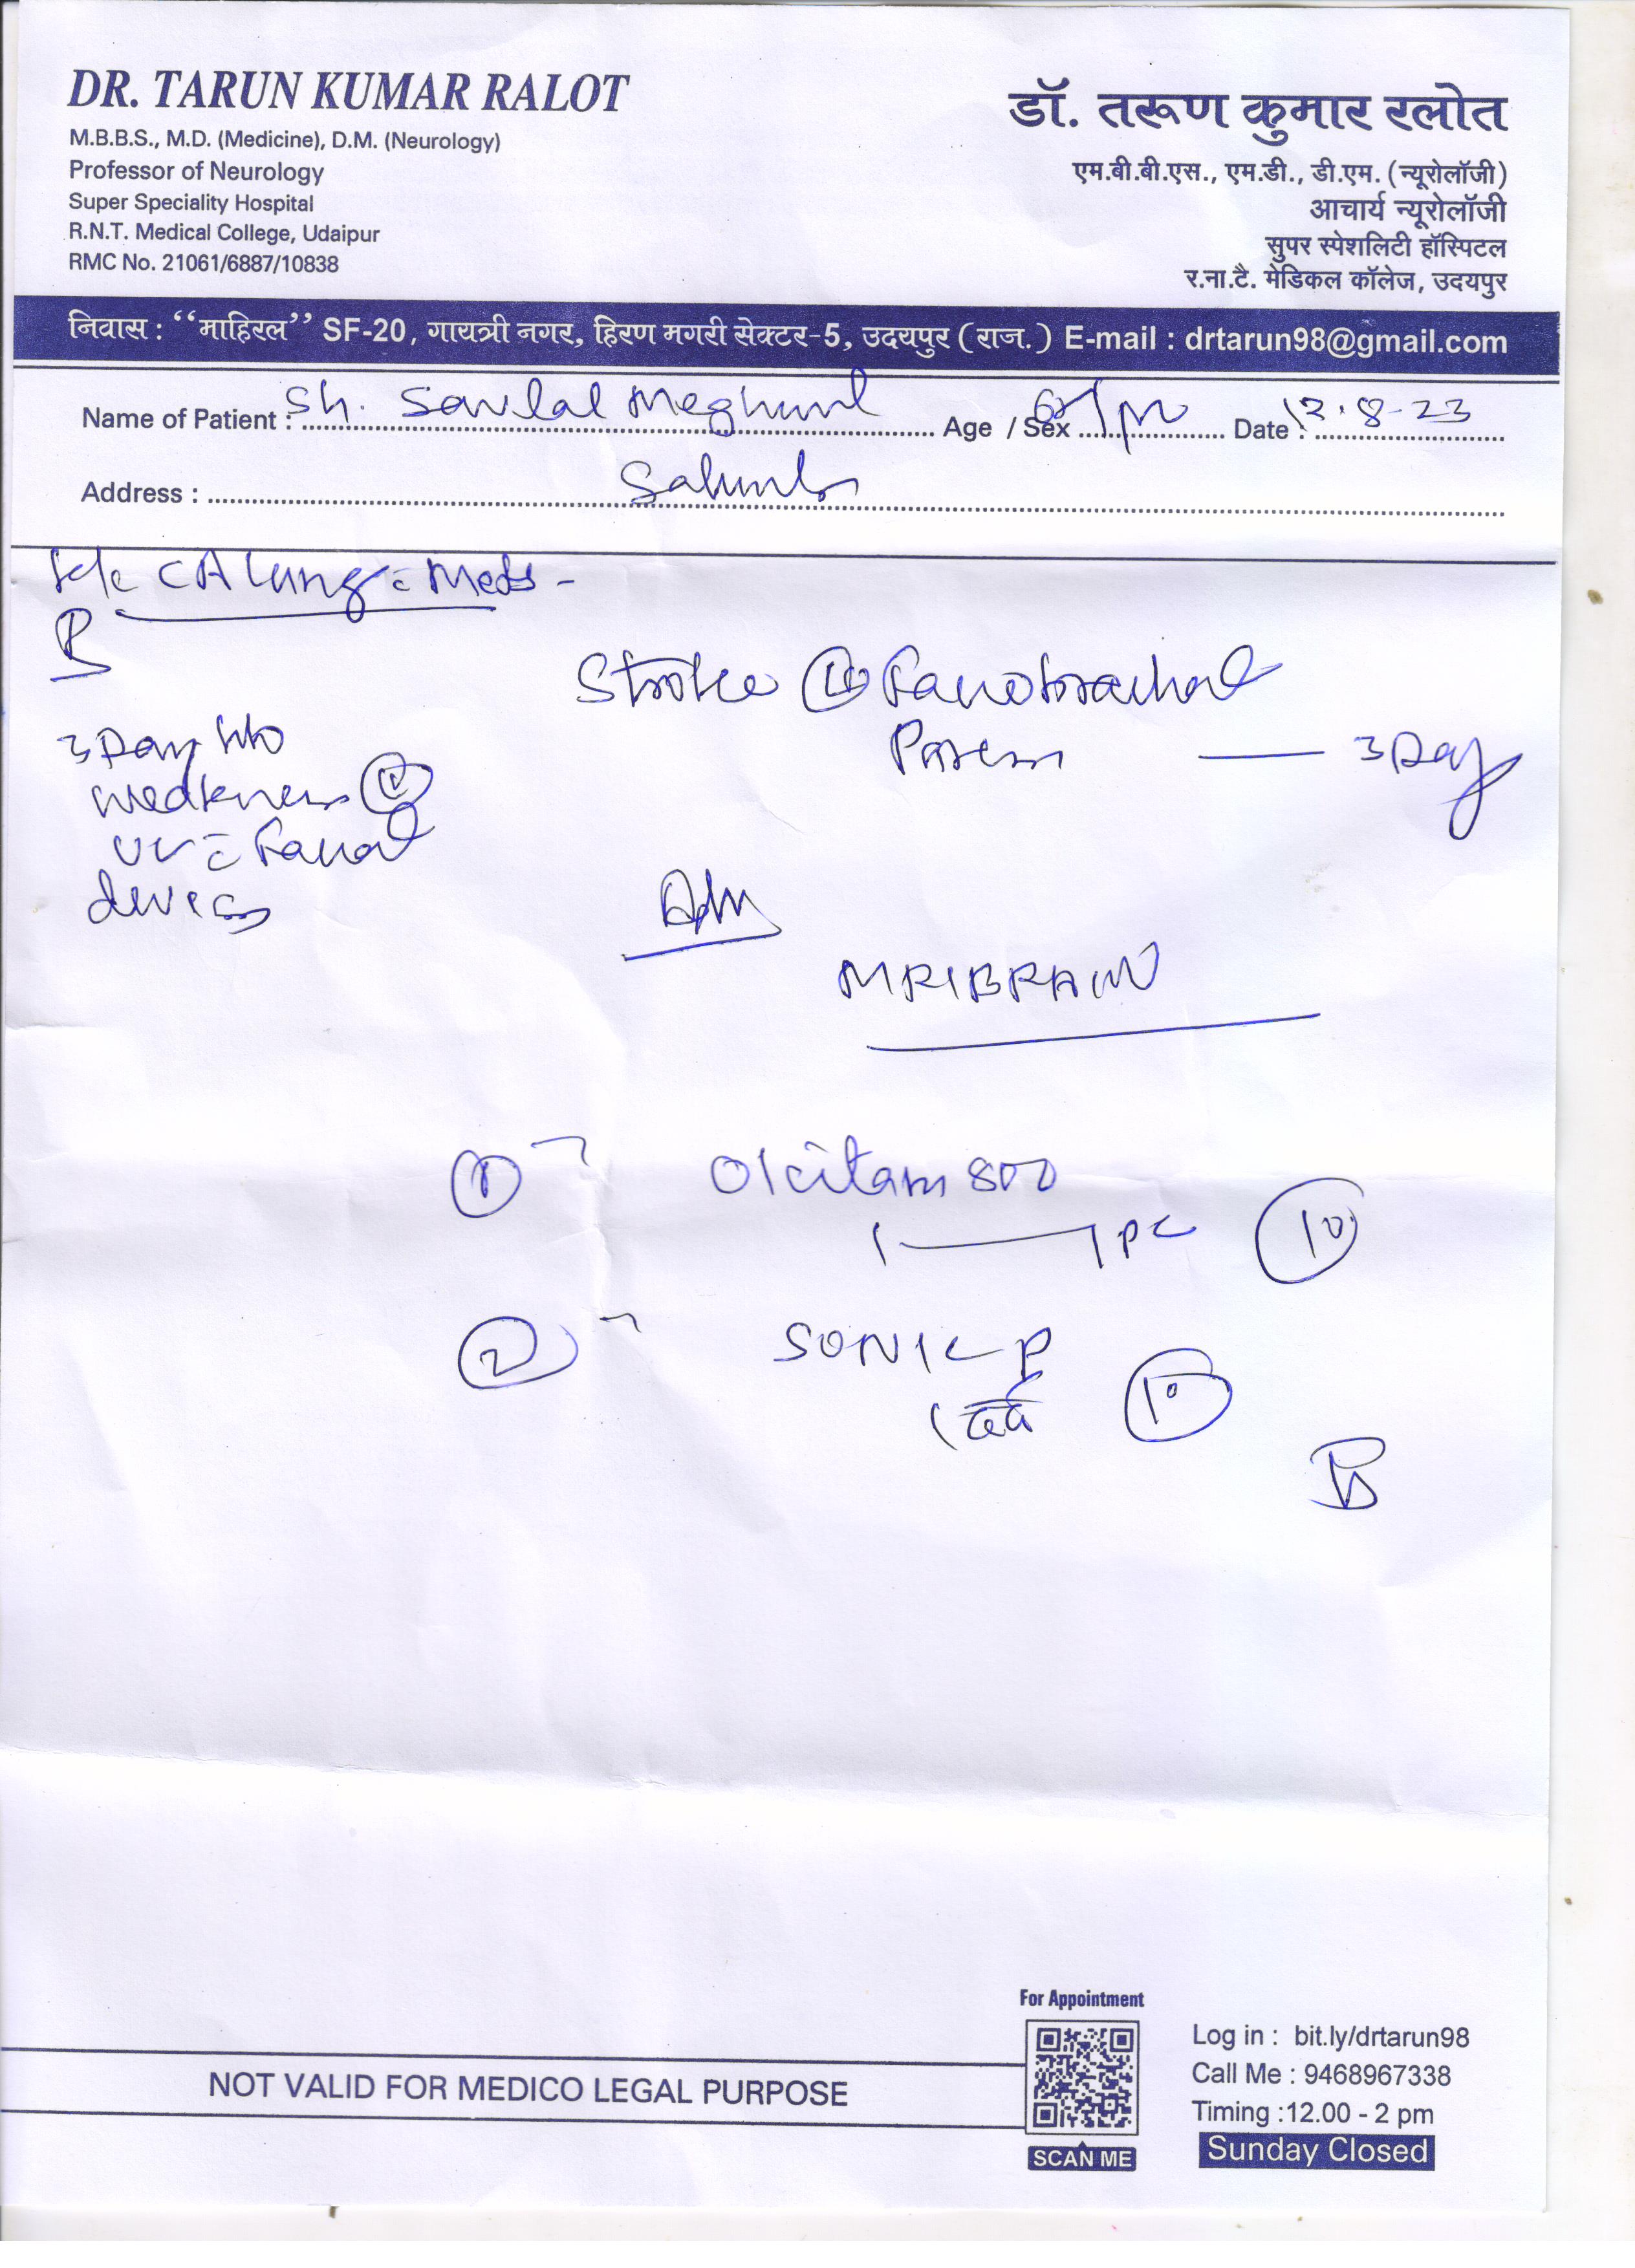 DR. TARUN KUMAR RALOT
M.B.B.S., M.D. (Medicine), D.M. (Neurology)
Professor of Neurology
Super Speciality Hospital
R.N.T. Medical College, Udaipur
RMC No. 21061/6887/10838
डॉ. तरूण कुमार रलोत
एम.बी.बी.एस., एम.डी., डी.एम. (न्यूरोलॉजी)
आचार्य न्यूरोलॉजी
सुपर स्पेशलिटी हॉस्पिटल
र.ना.टै. मेडिकल कॉलेज, उदयपुर
निवास : “माहिरल” SF-20, गायत्री नगर, हिरण मगरी सेक्टर-5, उदयपुर (राज.) E-mail : drtarun98@gmail.com
Name of Patient : Sh. Age / Sex Date : 12.8-23
Address :
CA Lung c Mets -
Stroke
3 Day
3 Day h/o
weakness
Adm
MRI BRAIN
1 800
1 — 1 PC 10
2 SONIC P
1 दर्द 10
NOT VALID FOR MEDICO LEGAL PURPOSE
For Appointment
SCAN ME
Log in : bit.ly/drtarun98
Call Me : 9468967338
Timing :12.00 - 2 pm
Sunday Closed